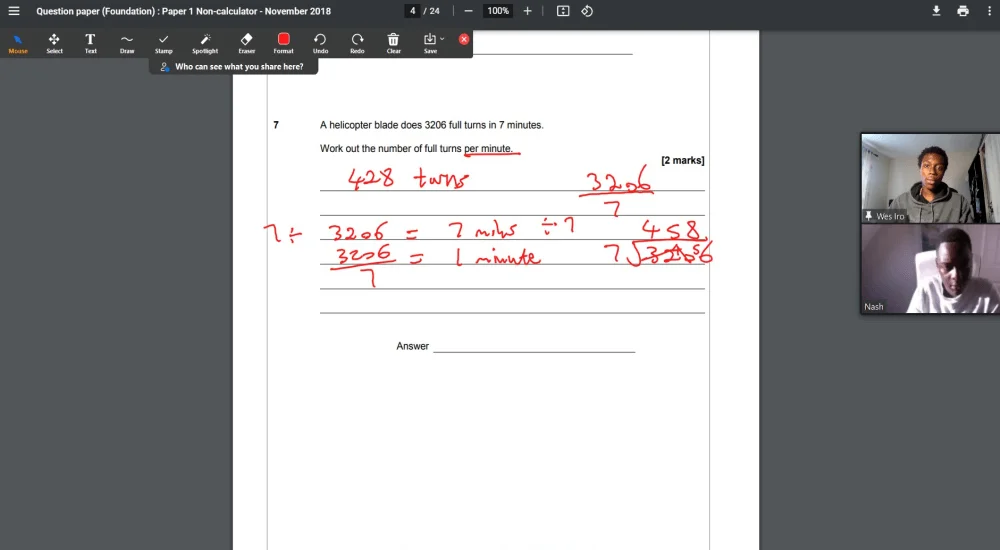 Question paper (Foundation) : Paper 1 Non-calculator - November 2018
4 / 24
100%
Mouse Select Text Draw Stamp Spotlight Eraser Format Undo Redo Clear Save
Who can see what you share here?
7 A helicopter blade does 3206 full turns in 7 minutes.
Work out the number of full turns per minute.
[2 marks]
428 turns
3206
7
7 ÷ 3206 = 7 mins ÷ 7
458
3206 = 1 minute
7
7
Answer
Wes Iro
Nash